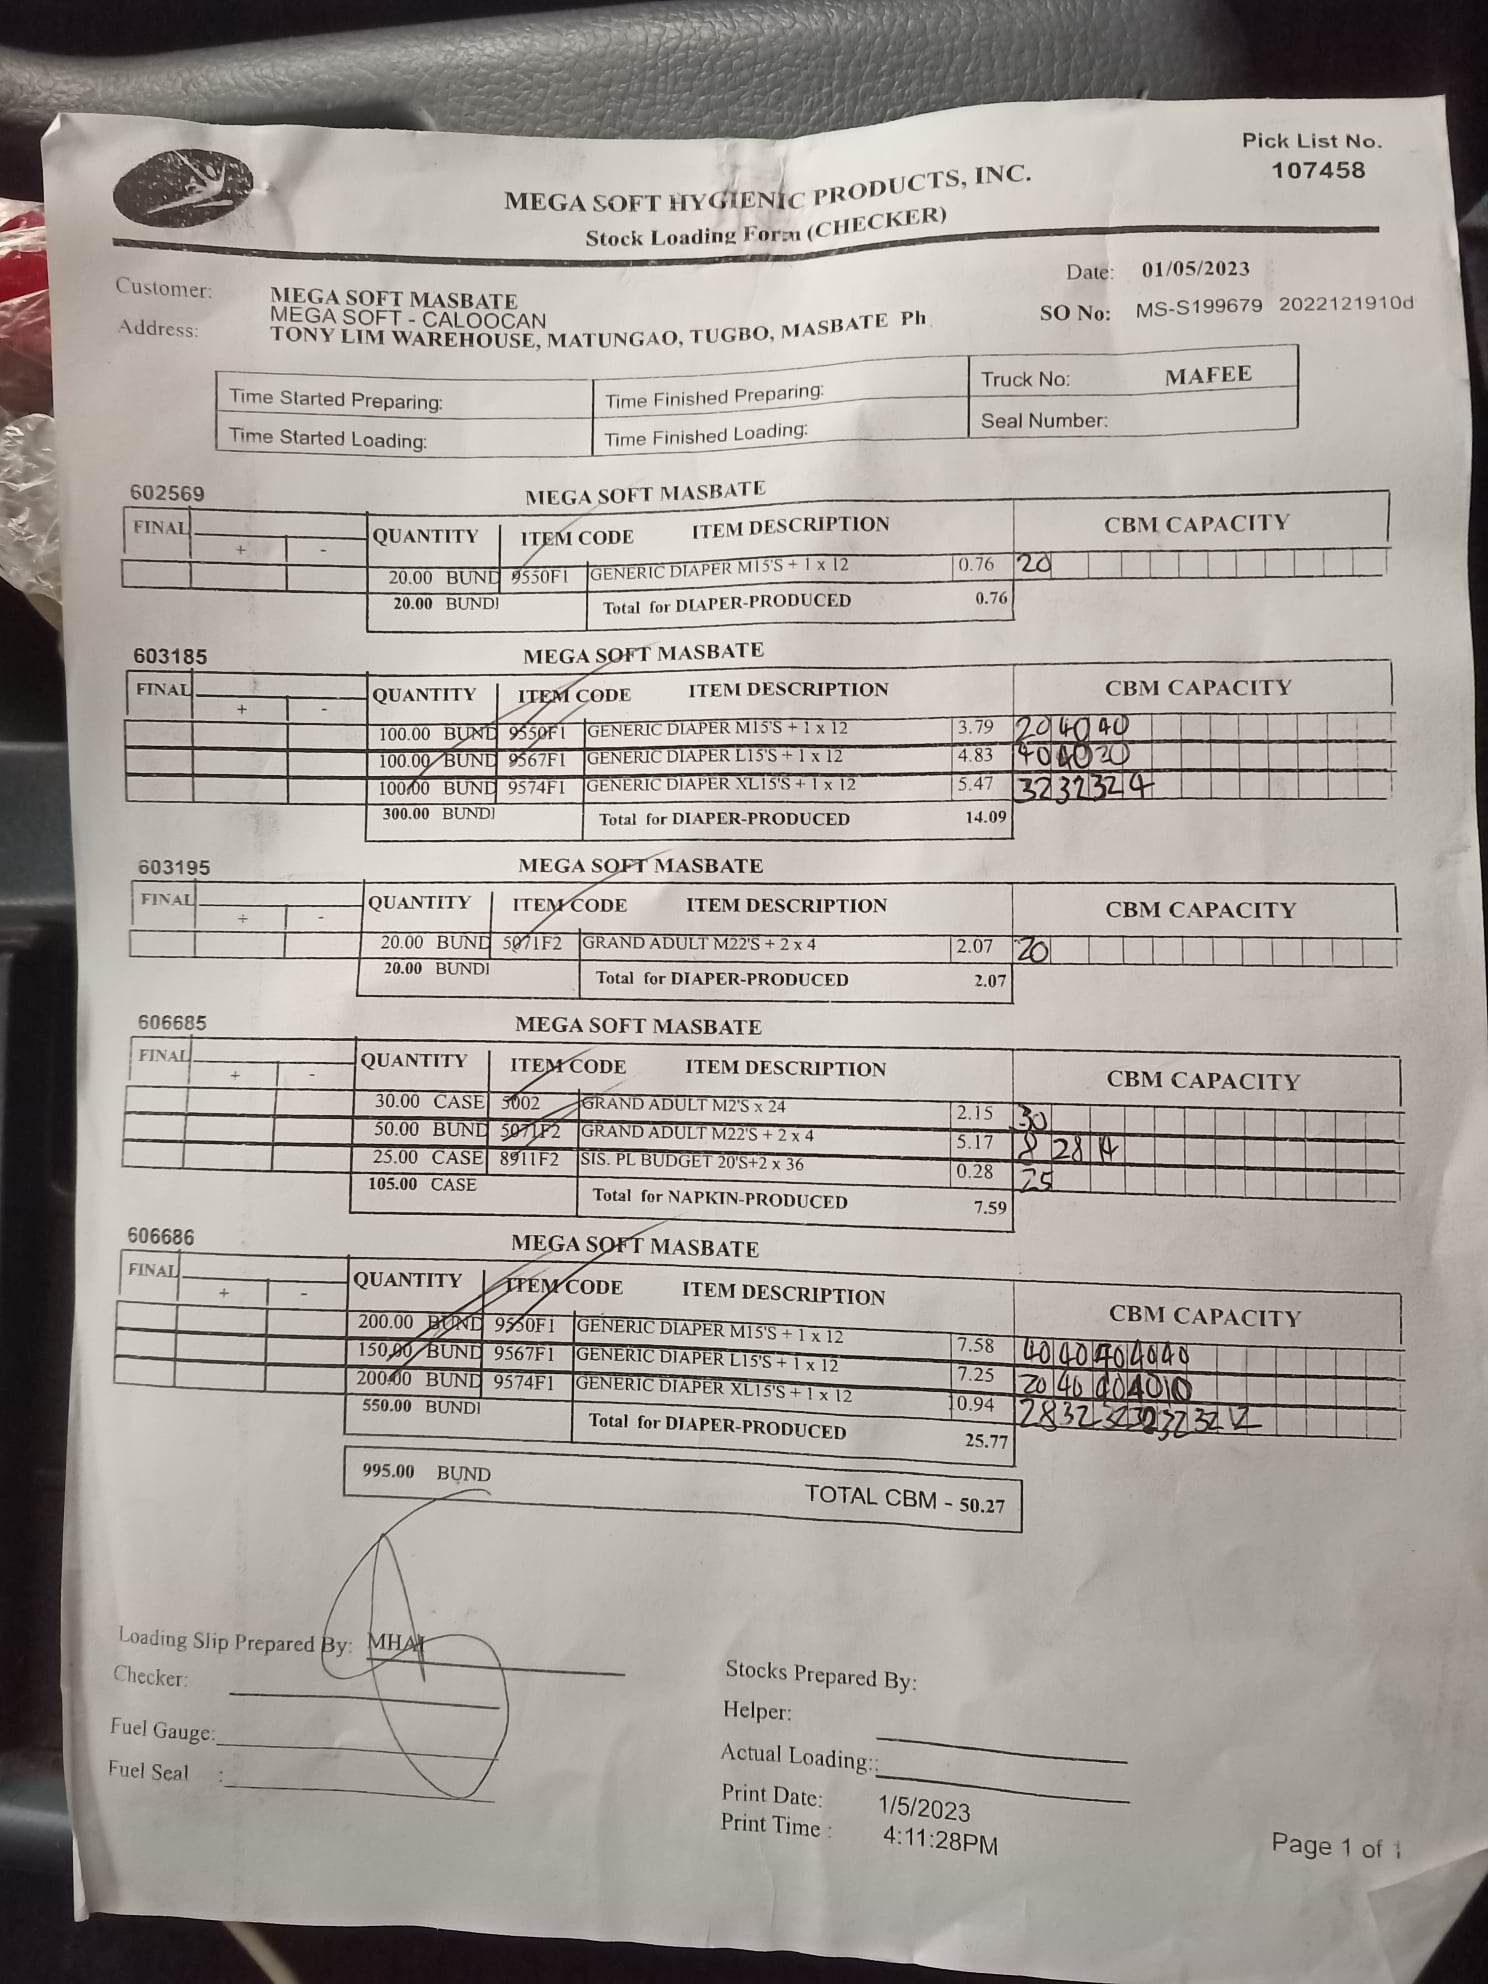 Pick List No.
107458
MEGA SOFT HYGIENIC PRODUCTS, INC.
Stock Loading Form (CHECKER)
Date: 01/05/2023
Customer: MEGA SOFT MASBATE
MEGA SOFT - CALOOCAN
SO No: MS-S199679 2022121910d
Address: TONY LIM WAREHOUSE, MATUNGAO, TUGBO, MASBATE Ph
Time Started Preparing: Time Finished Preparing: Truck No: MAFEE
Time Started Loading: Time Finished Loading: Seal Number:
602569 MEGA SOFT MASBATE
FINAL QUANTITY ITEM CODE ITEM DESCRIPTION CBM CAPACITY
+ -
20.00 BUND 9550F1 GENERIC DIAPER M15'S + 1 x 12 0.76 20
20.00 BUNDI Total for DIAPER-PRODUCED 0.76
603185 MEGA SOFT MASBATE
FINAL QUANTITY ITEM CODE ITEM DESCRIPTION CBM CAPACITY
+ -
100.00 BUND 9550F1 GENERIC DIAPER M15'S + 1 x 12 3.79 20 40 40
100.00 BUND 9567F1 GENERIC DIAPER L15'S + 1 x 12 4.83 40 40 20
100.00 BUND 9574F1 GENERIC DIAPER XL15'S + 1 x 12 5.47 32 32 32 4
300.00 BUNDI Total for DIAPER-PRODUCED 14.09
603195 MEGA SOFT MASBATE
FINAL QUANTITY ITEM CODE ITEM DESCRIPTION CBM CAPACITY
+ -
20.00 BUND 5071F2 GRAND ADULT M22'S + 2 x 4 2.07 20
20.00 BUNDI Total for DIAPER-PRODUCED 2.07
606685 MEGA SOFT MASBATE
FINAL QUANTITY ITEM CODE ITEM DESCRIPTION CBM CAPACITY
+ -
30.00 CASE 5002 GRAND ADULT M2'S x 24 2.15 30
50.00 BUND 5071F2 GRAND ADULT M22'S + 2 x 4 5.17 8 28
25.00 CASE 8911F2 SIS. PL BUDGET 20'S+2 x 36 0.28 25
105.00 CASE Total for NAPKIN-PRODUCED 7.59
606686 MEGA SOFT MASBATE
FINAL QUANTITY ITEM CODE ITEM DESCRIPTION CBM CAPACITY
+ -
200.00 BUND 9550F1 GENERIC DIAPER M15'S + 1 x 12 7.58 40 40 40 40 40
150.00 BUND 9567F1 GENERIC DIAPER L15'S + 1 x 12 7.25 20 40 40 40 10
200.00 BUND 9574F1 GENERIC DIAPER XL15'S + 1 x 12 0.94 28 32 32 32 32 32
550.00 BUNDI Total for DIAPER-PRODUCED 25.77
995.00 BUND TOTAL CBM - 50.27
Loading Slip Prepared By: MHAI
Checker:
Fuel Gauge:
Fuel Seal :
Stocks Prepared By:
Helper:
Actual Loading::
Print Date: 1/5/2023
Print Time : 4:11:28PM
Page 1 of 1